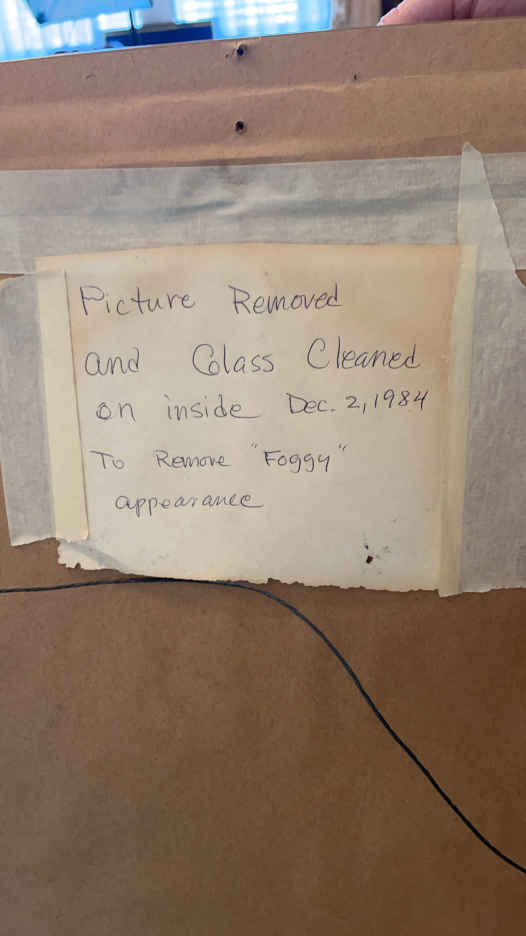 Picture Removed
and Glass Cleaned
on inside Dec. 2, 1984
To Remove "Foggy"
appearance